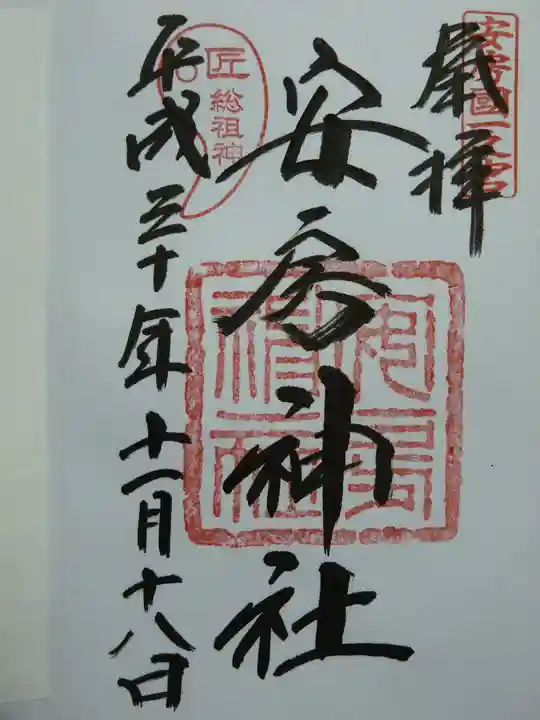 安房國一之宮
厳拝
安房神社
安房神社
匠総祖神
平成三十年十一月十八日